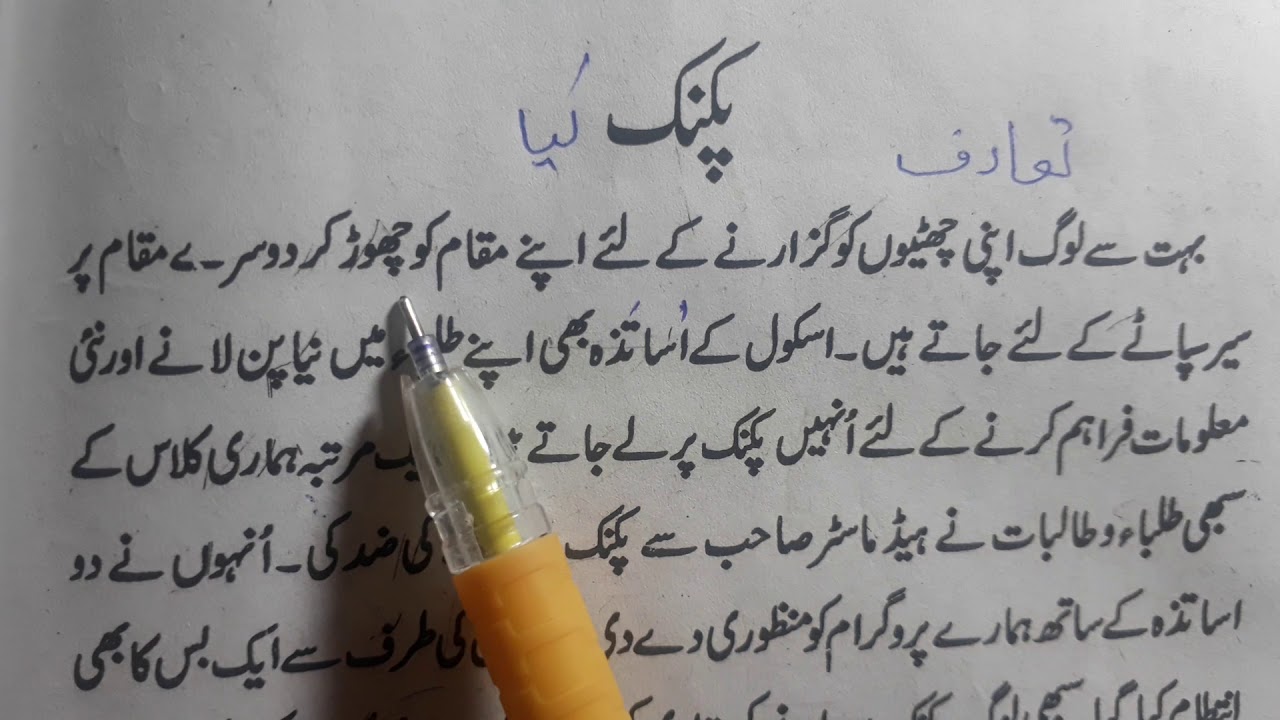 تعارف پکنک کیا
بہت سے لوگ اپنی چھٹیوں کو گزارنے کے لئے اپنے مقام کو چھوڑ کر دوسرے مقام پر
سیر سپاٹے کے لئے جاتے ہیں۔ اسکول کے اُساتذہ بھی اپنے میں نیا پن لانے اور نئی
معلومات فراہم کرنے کے لئے اُنہیں پکنک پر لے جاتے مرتبہ ہماری کلاس کے
سبھی طلباء و طالبات نے ہیڈ ماسٹر صاحب سے پکنک کی ضد کی۔ اُنہوں نے دو
اساتذہ کے ساتھ ہمارے پروگرام کو منظوری دے دی کی طرف سے ایک بس کا بھی
انتظام کیا گیا سبھی لوگ